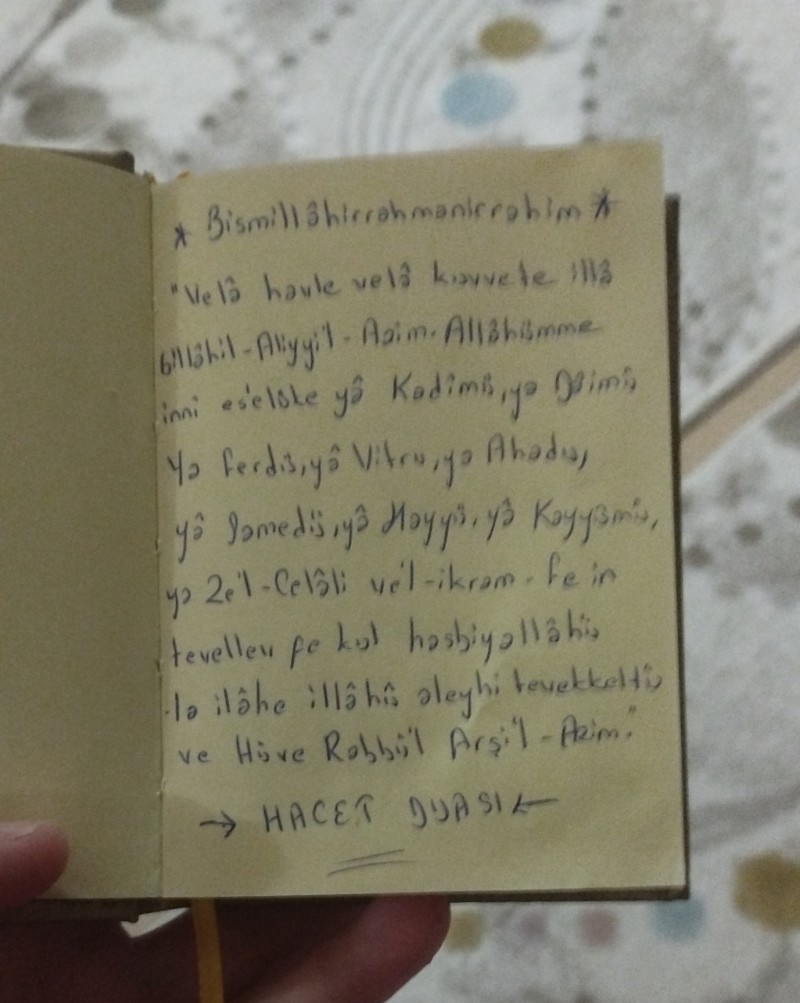 * Bismillâhirrahmanirrahim *
"Velâ havle velâ kuvvete illâ
billâhil-Aliyyi'l-Azim. Allâhümme
inni es'elüke yâ Kadîmü, ya Dâimü
Ya ferdü, yâ Vitru, ya Ahadu,
yâ Samedü, yâ Hayyü, yâ Kayyümü,
ya Ze'l-Celâli ve'l-ikram - fe in
tevellev fe kul hasbiyallâhü
la ilâhe illâhû aleyhi tevekkeltü
ve Hüve Rabbü'l Arşi'l-Azim."
→ HACET DUASI ←